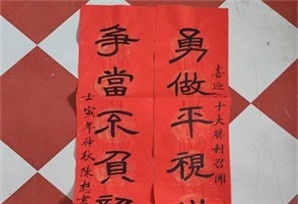 喜迎二十大勝利召開
勇做平視
爭當不負
壬寅年仲秋陳想書